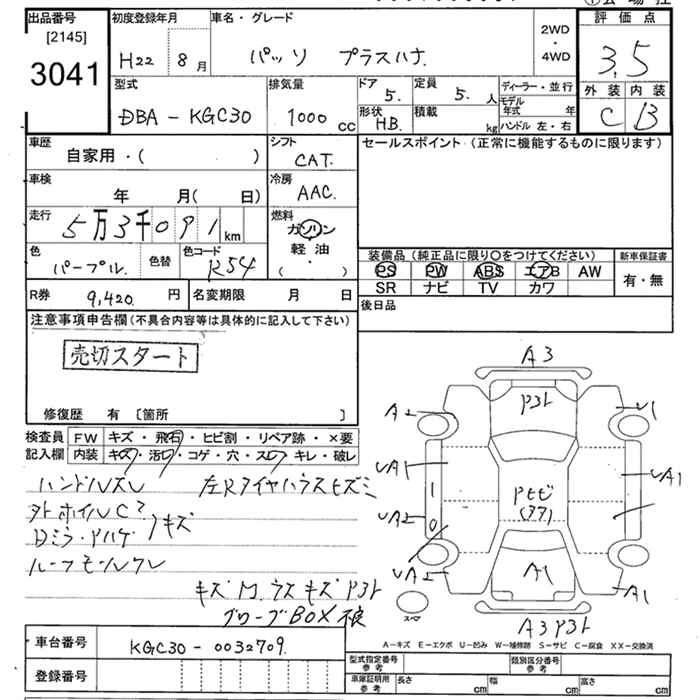 出品番号 初度登録年月 車名・グレード 2WD・4WD 評価点
[2145]
3041 H22 8月 パッソ プラスハナ 3.5
型式 排気量 ドア 定員 ディーラー・並行 外装 内装
DBA - KGC30 1000 cc 5. 5. 人 モデル年式 年 C B
形状 積載 ハンドル 左・右
H.B. kg
車歴 シフト セールスポイント (正常に機能するものに限ります)
自家用・( ) CAT.
車検 冷房
年 月( 日) AAC.
走行 燃料
5万3千091 km ガソリン
軽油
・( )
色 色替 色コード 装備品 (純正品に限り○をつけてください) 新車保証書
パープル. R54 PS PW ABS エアB AW 有・無
SR ナビ TV カワ
R券 9,420 円 名変期限 月 日 後日品
注意事項申告欄(不具合内容等は具体的に記入して下さい)
売切スタート
修復歴 有 〔箇所 〕
検査員 FW キズ・飛石・ヒビ割・リペア跡・×要
記入欄 内装 キズ・汚レ・コゲ・穴・スレ・キレ・破レ
ハンドルズレ 左Rタイヤハウスヒズミ
キズ
キズ
BOX
A3
P31
A2 U1
UA1 UA1
UA2 1 0
UA2 A1 A1
スペア
A3 P31
A-キズ E-エクボ U-凹み W-補修跡 S-サビ C-腐食 XX-交換済
車台番号 KGC30 - 0032709.
登録番号
型式指定番号 参考 類別区分番号 参考
車庫証明用 参考 長さ cm 幅 cm 高さ cm